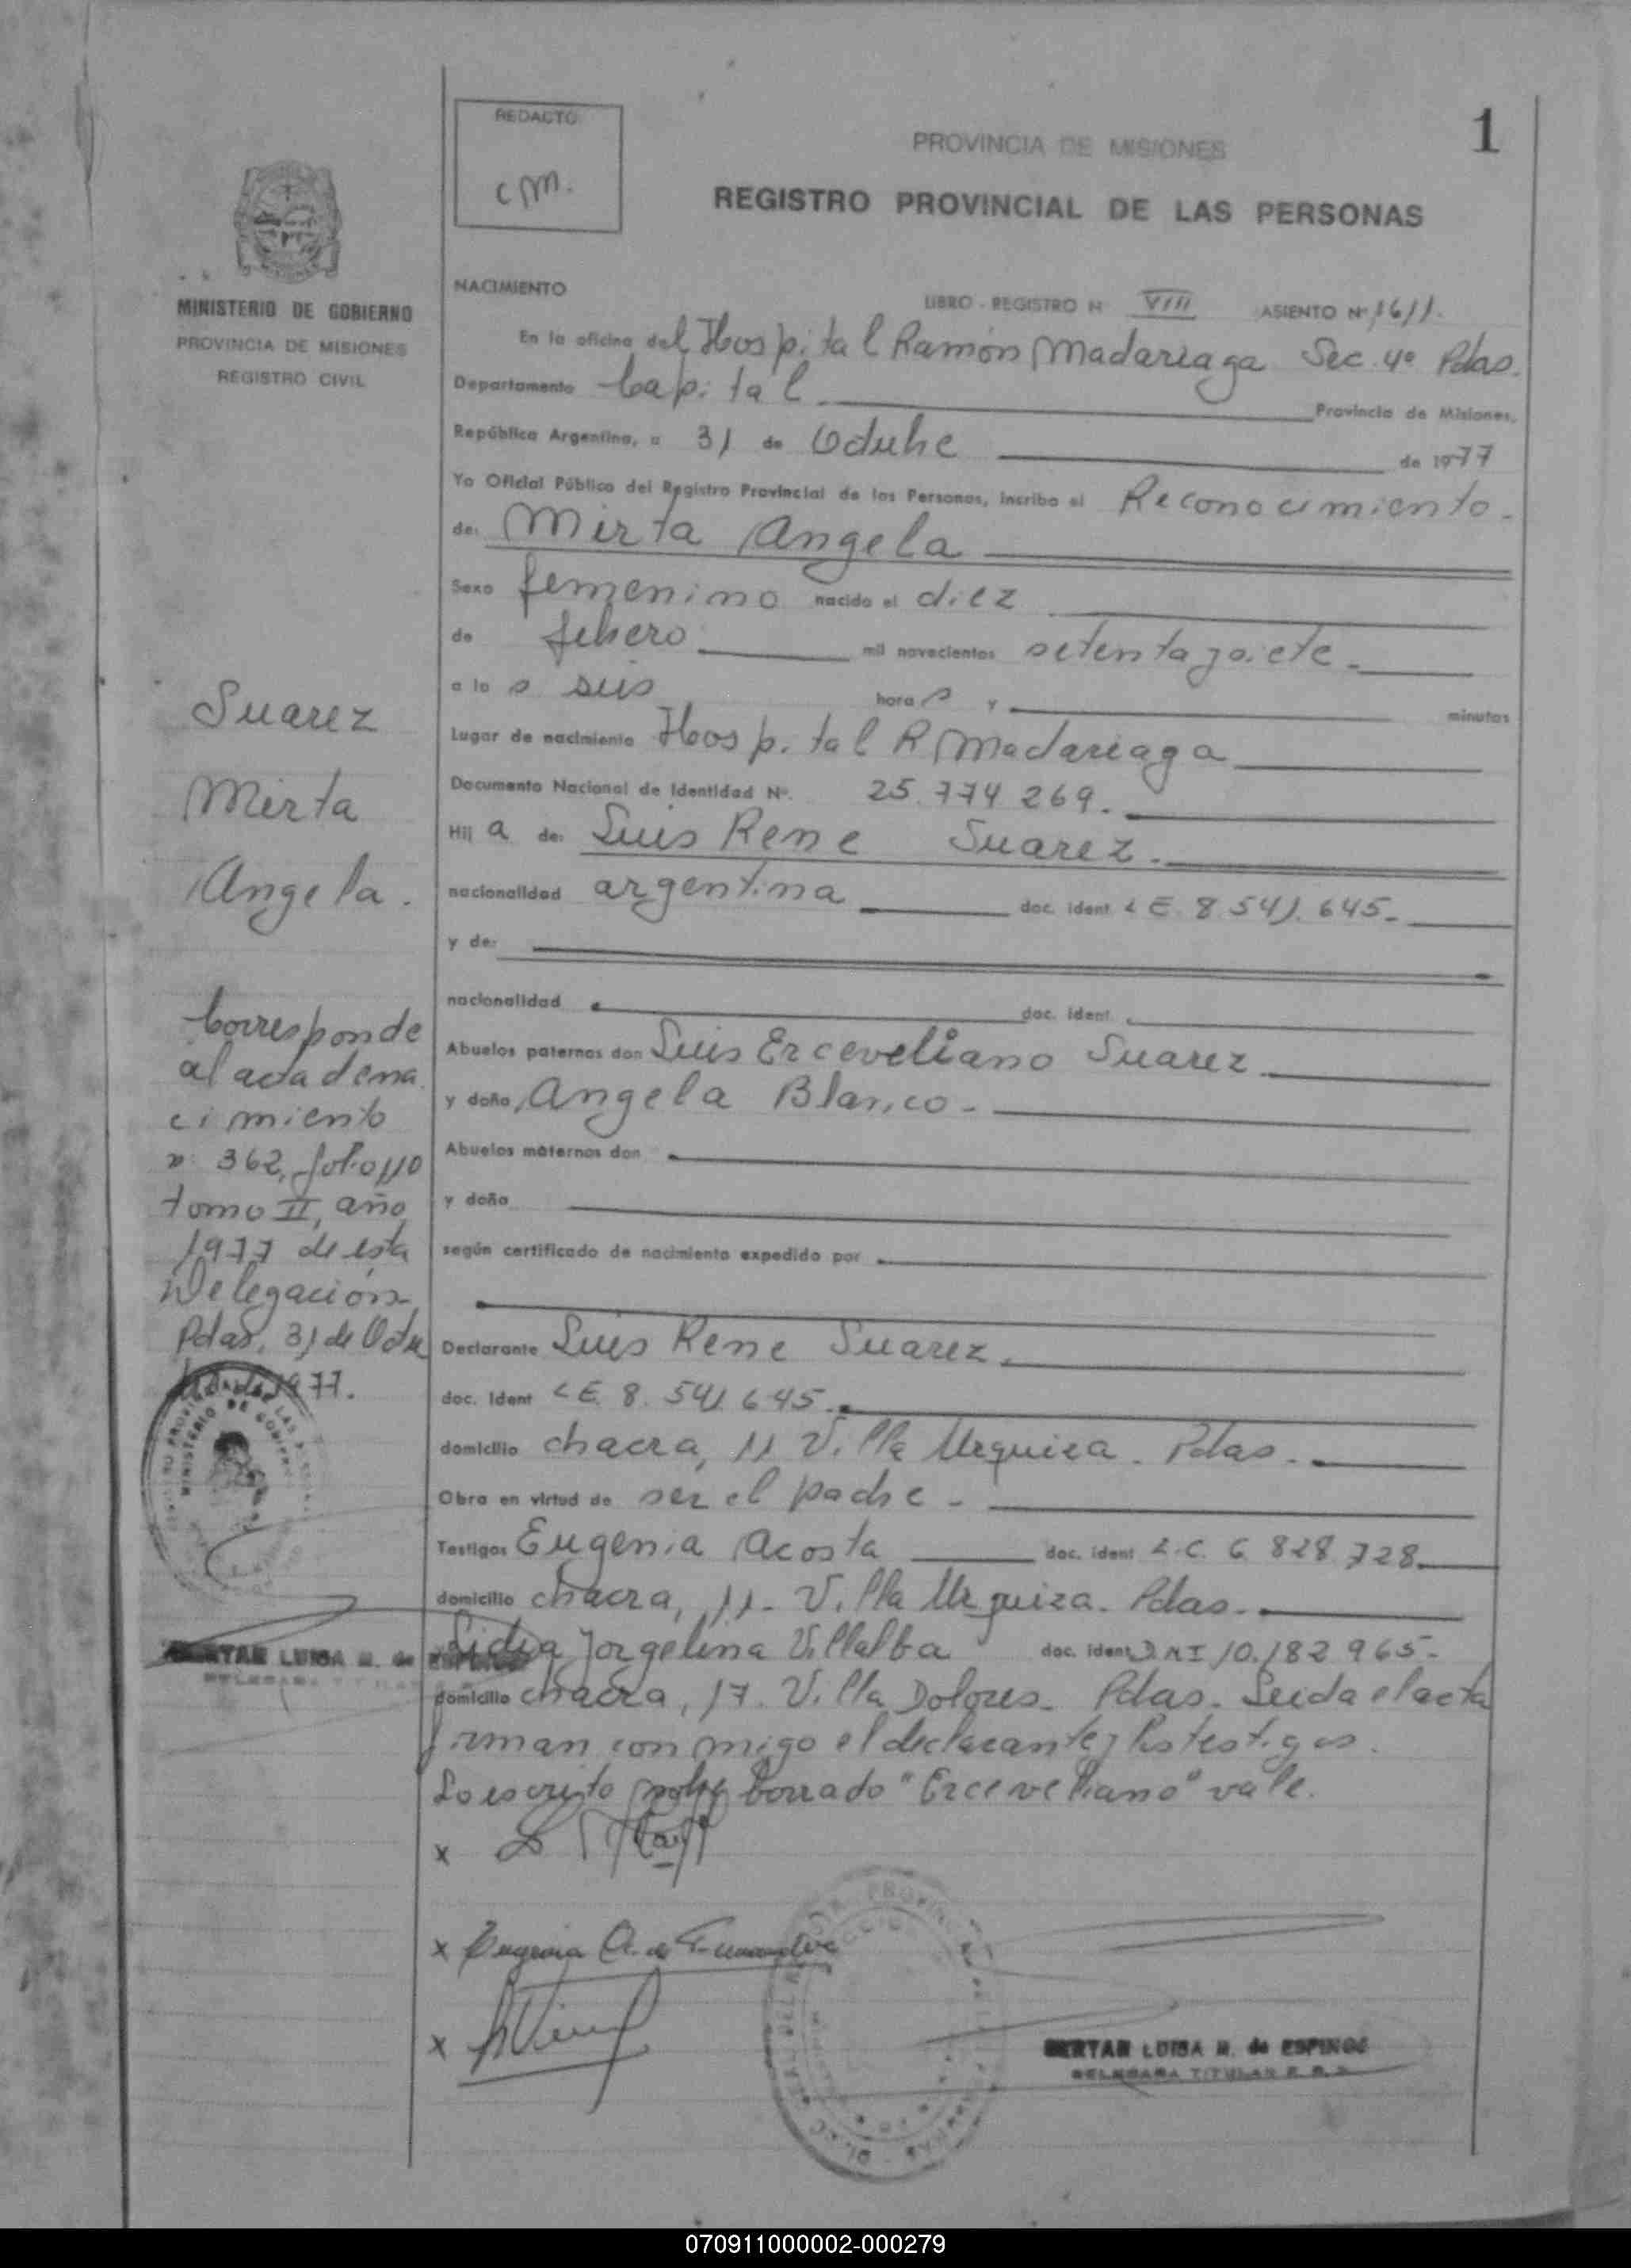 REDACTO
cm.
PROVINCIA DE MISIONES
1
REGISTRO PROVINCIAL DE LAS PERSONAS
MINISTERIO DE GOBIERNO
PROVINCIA DE MISIONES
REGISTRO CIVIL
NACIMIENTO
LIBRO - REGISTRO Nº VIII ASIENTO Nº 1611.
En la oficina del Hospital Ramón Madariaga Sec. 4º Pdas.
Departamento Capital Provincia de Misiones,
República Argentina, a 31 de Octubre de 1977
Yo Oficial Público del Registro Provincial de las Personas, inscribo el Reconocimiento.
de: Mirta Angela
Sexo femenino nacido el diez
de febrero mil novecientos setenta y siete.
a las seis horas y minutos
Lugar de nacimiento Hospital R Madariaga
Documento Nacional de Identidad Nº. 25.774 269.
Hija de: Luis Rene Suarez.
nacionalidad argentina doc. ident. LE. 8.541.645.
y de:
nacionalidad doc. ident.
Abuelos paternos don Luis Erceveliano Suarez
y doña Angela Blanco.
Abuelos maternos don
y doña
según certificado de nacimiento expedido por
Declarante Luis Rene Suarez.
doc. ident LE. 8. 541. 645.
domicilio chacra, 11 Villa Urquiza. Pdas.
Obra en virtud de ser el padre.
Testigos Eugenia Acosta doc. ident L.C. 6.828.728.
domicilio chacra, 11. Villa Urquiza. Pdas.
Lidia Jorgelina Villalba doc. ident D.N.I 10.182 965.
domicilio chacra, 17. Villa Dolores. Pdas. Leida el acta
firman conmigo el declarante y los testigos.
Lo escrito sobre borrado "Erceveliano" vale.
x
x Eugenia A. de
x
BERTAR LUISA M. de ESPINOS
DELEGADA TITULAR
Suarez
Mirta
Angela.
Corresponde
al acta de na
cimiento
nº 362, folio 110
tomo II, año
1977 de esta
Delegación
Pdas, 31 de Octu
bre de 1977.
MINISTERIO DE GOBIERNO
BERTAR LUISA M. de ESPINOS
DELEGADA TITULAR
070911000002-000279